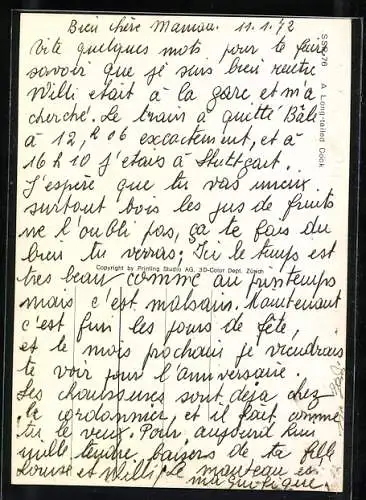 Bien chère Maman. 11.1.72
Vite quelques mots pour te faire
savoir que je suis bien rentré
Willi était à la gare et m'a
cherché. Le train a quitté Bâle
à 12,h 06 exactement, et à
16 h 10 j'étais à Stuttgart.
J'espère que tu vas mieux
surtout bois les jus de fruits
ne l'oubli pas, ça te fais du
bien tu verras; Ici le temps est
très beau comme au printemps
mais c'est malsain. Maintenant
c'est fini les jours de fête,
et le mois prochain je viendrais
te voir pour l'anniversaire.
Les chaussures sont deja chez
le cordonnier et il fait comme
tu le veux. Pour aujourd'hui
mille tendre baisers de ta fille
Louise et Willi, Le manteau est
magnifique.
Copyright by Printing Studio AG, 3D-Color Dept. Zürich
A Long-tailed Cock